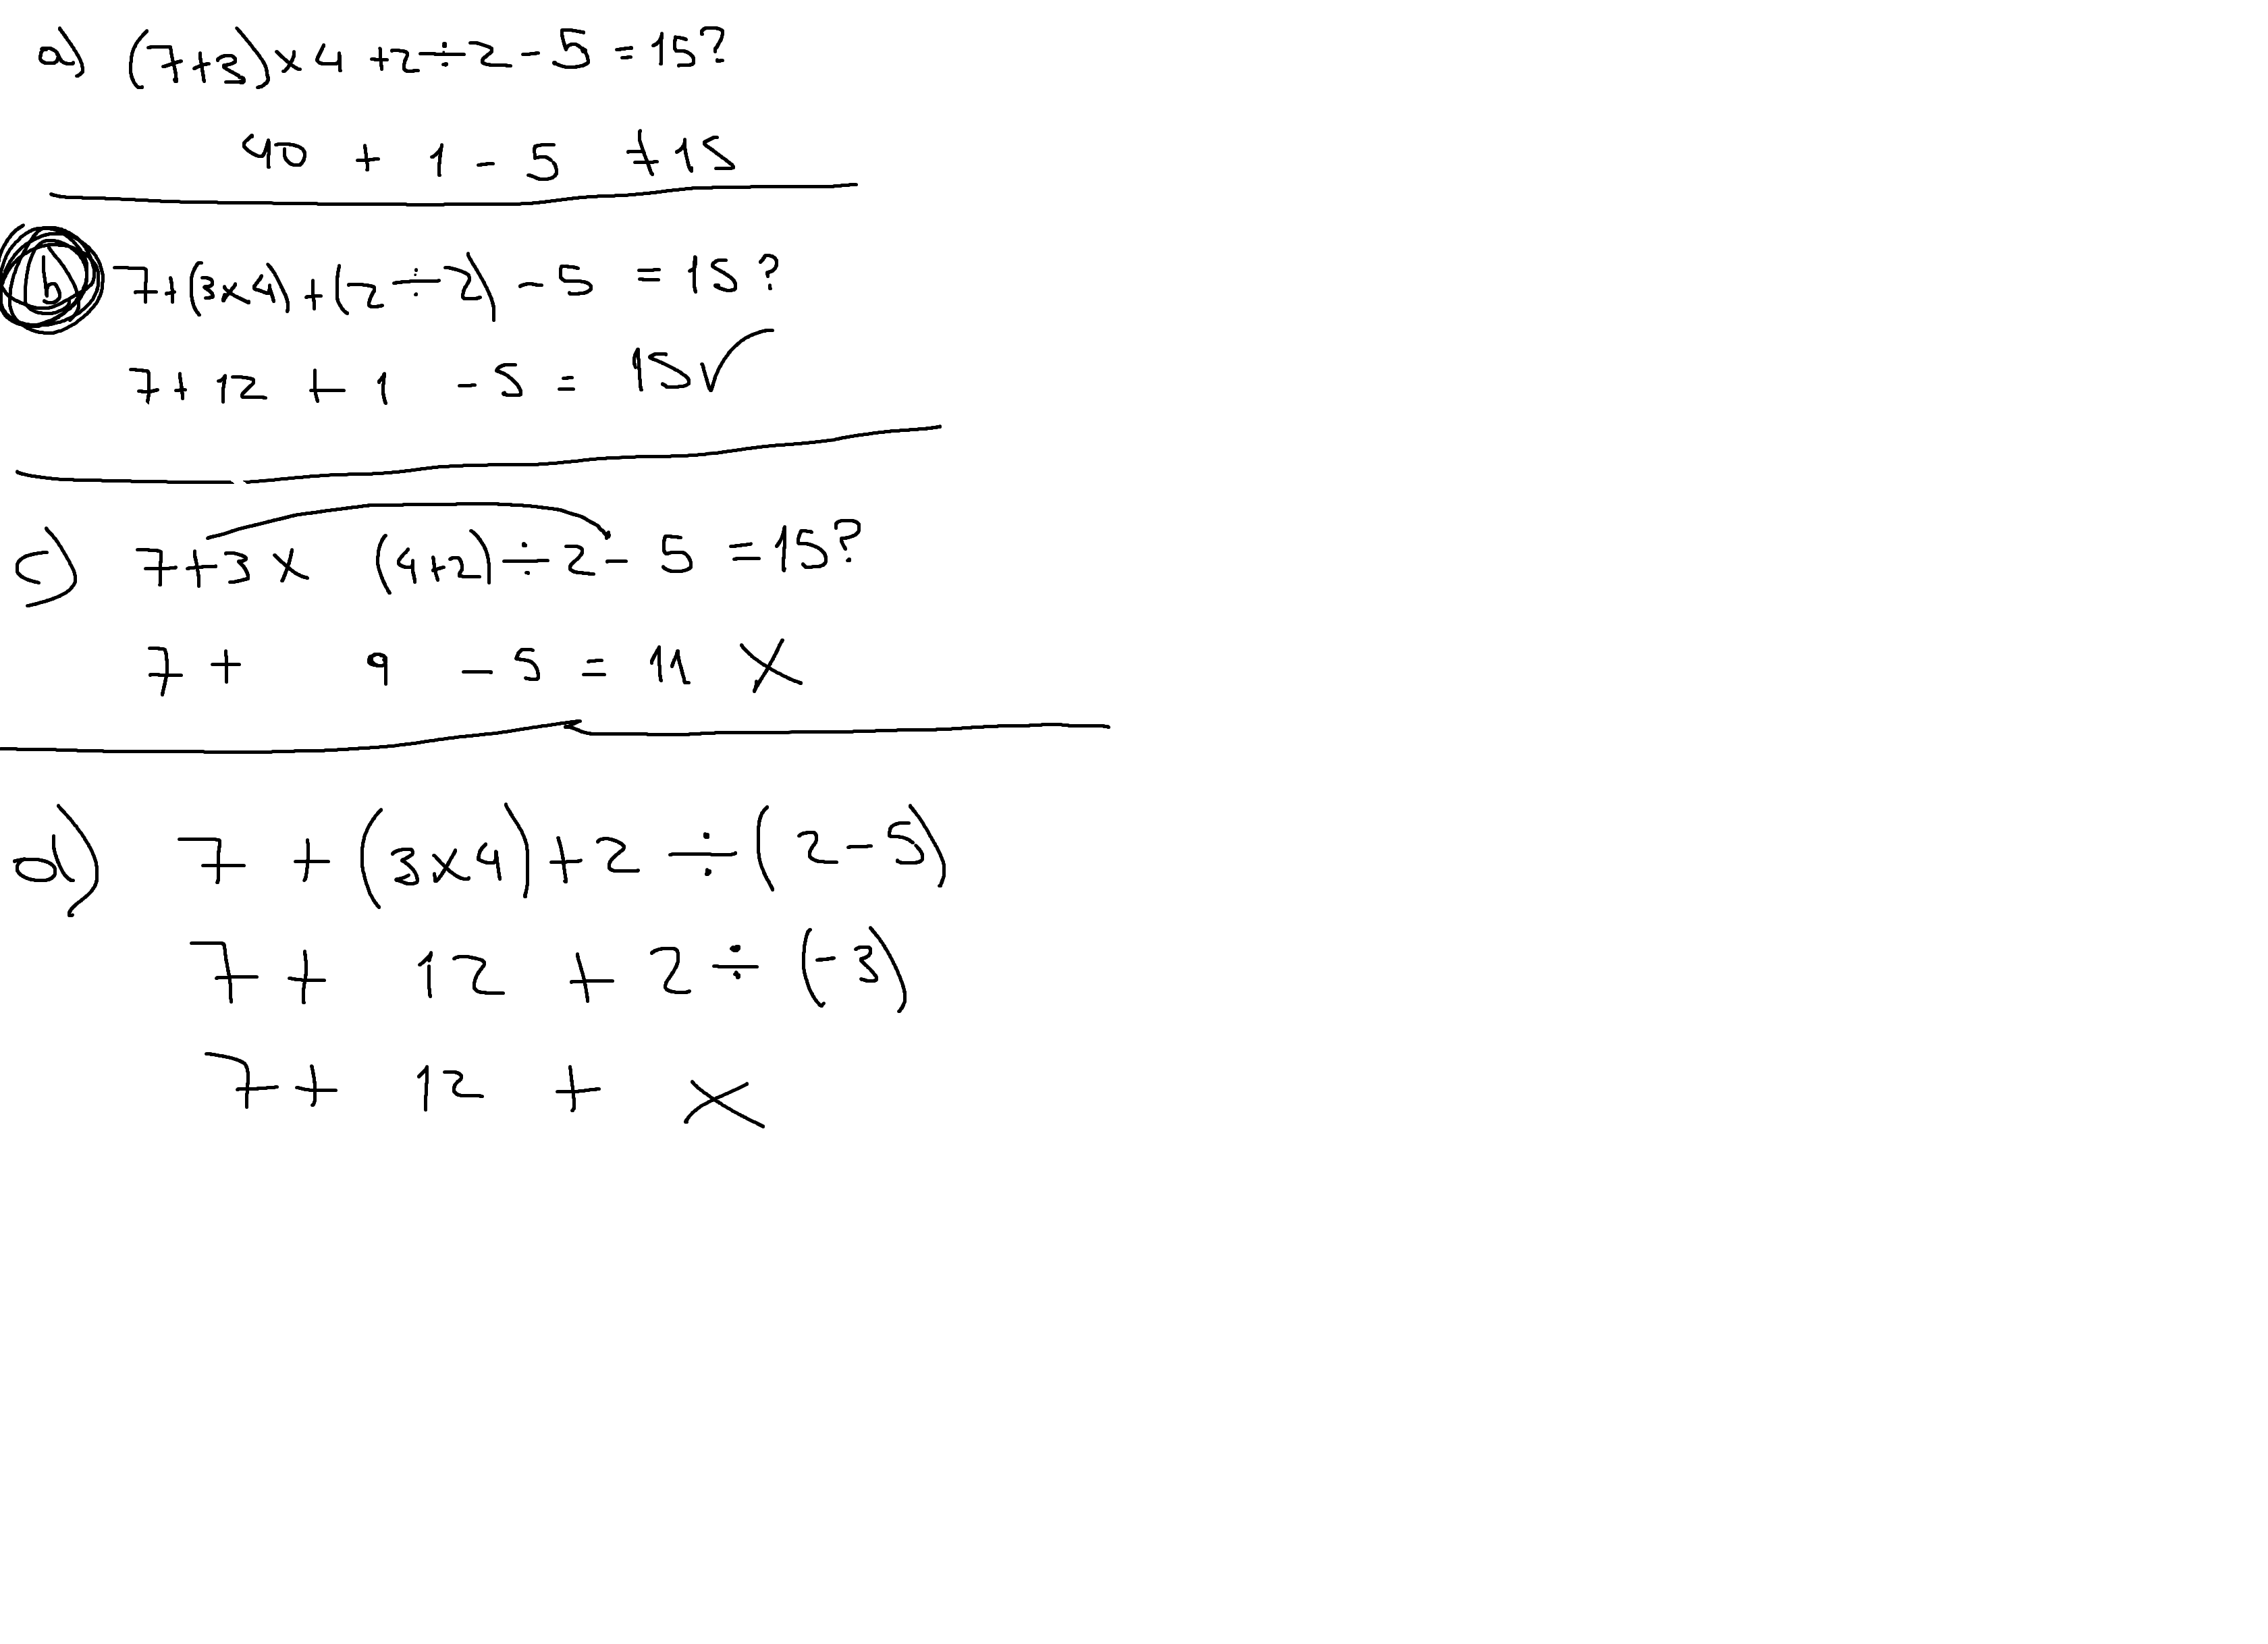 a) (7+3)×4+2÷2-5=15?
40 + 1 - 5 ≠ 15
b) 7+(3×4)+(2÷2)-5 = 15?
7+12 + 1 -5 = 15✓
c) 7+3× (4+2)÷2- 5 =15?
7+ 9 - 5 = 11 ×
d) 7 + (3×4)+2 ÷ (2-5)
7+ 12 + 2 ÷ (-3)
7+ 12 + ×